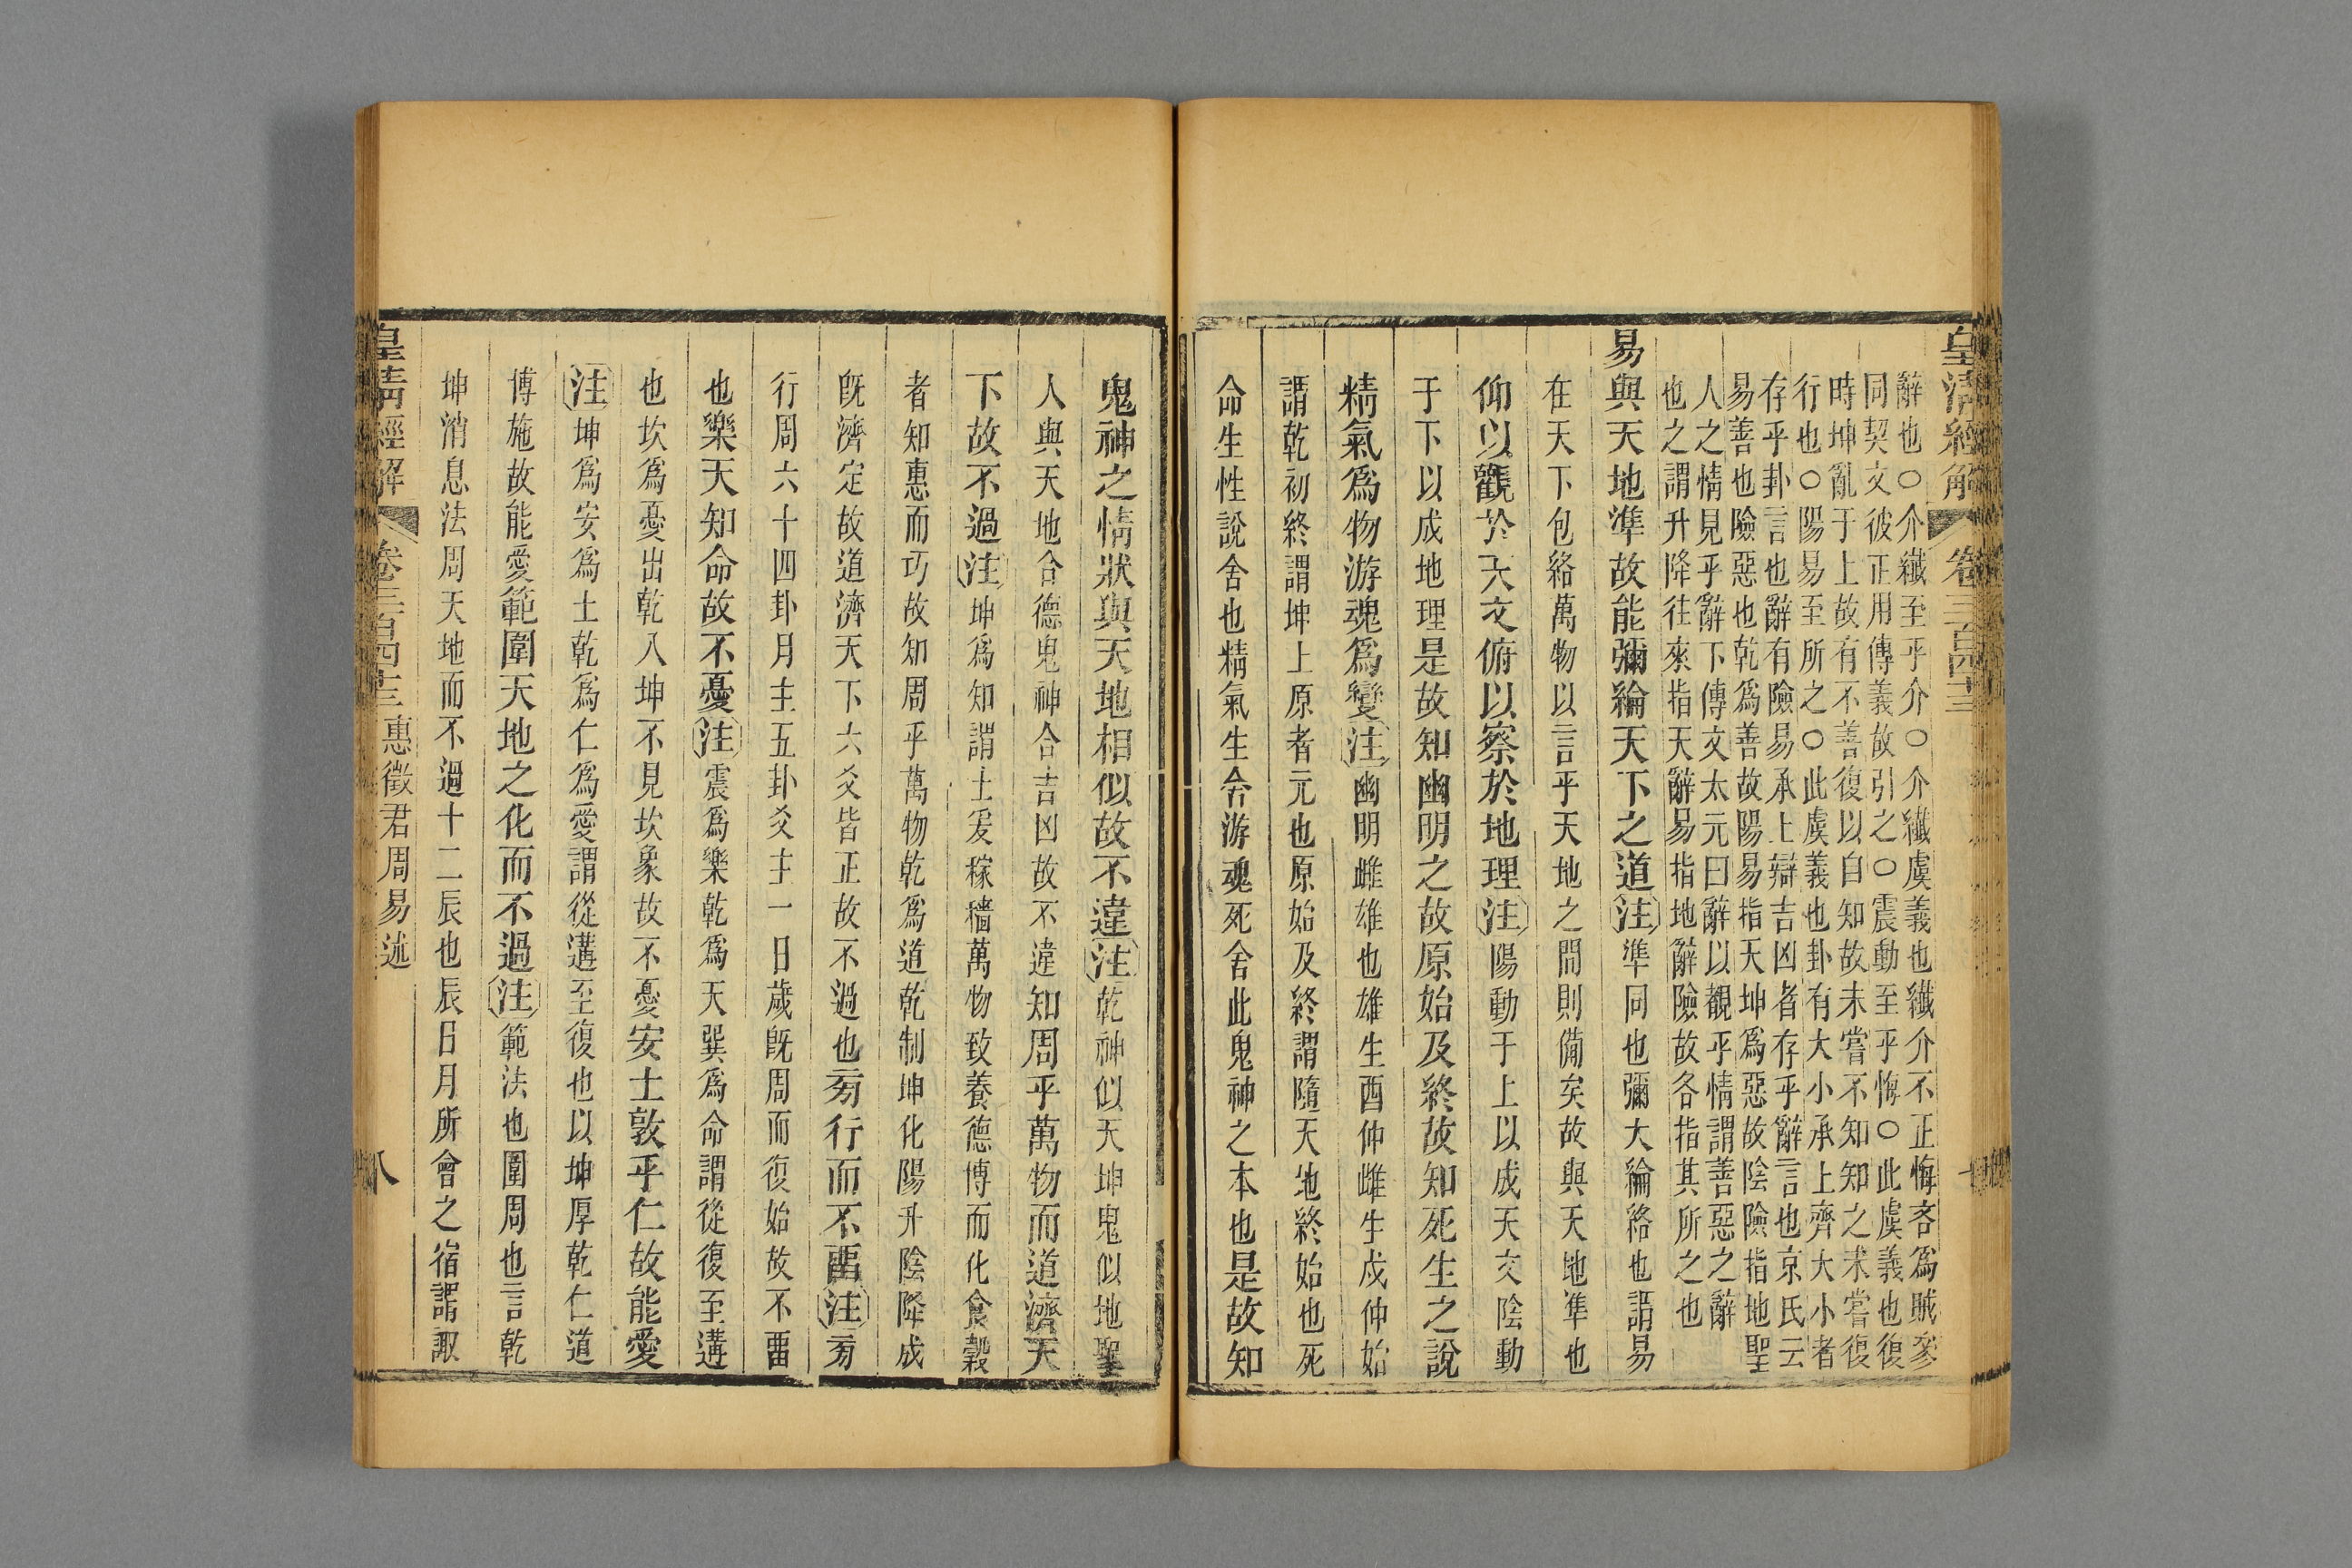 皇清經解 卷三百四十三
辭也○介纖至乎介○介纖虞義也纖介不正悔吝爲賊參
同契文彼正用傳義故引之○震動至乎悔○此虞義也復
時坤亂于上故有不善復以自知故未嘗不知知之未嘗復
行也○陽易至所之○此虞義也卦有大小承上齊大小者
存乎卦言也辭有險易承上辯吉凶者存乎辭言也京氏云
易善也險惡也乾爲善故陽易指天坤爲惡故陰險指地聖
人之情見乎辭下傳文太元曰辭以觀乎情謂善惡之辭
也之謂升降往來指天辭易指地辭險故各指其所之也
易與天地準故能彌綸天下之道注準同也彌大綸絡也謂易
在天下包絡萬物以言乎天地之間則備矣故與天地準也
仰以觀於天文俯以察於地理注陽動于上以成天文陰動
于下以成地理是故知幽明之故原始及終故知死生之說
精氣爲物游魂爲變注幽明雌雄也雄生酉仲雌生戌仲始
謂乾初終謂坤上原者元也原始及終謂隨天地終始也死
命生性說舍也精氣生舍游魂死舍此鬼神之本也是故知
鬼神之情狀與天地相似故不違注乾神似天坤鬼似地聖
人與天地合德鬼神合吉凶故不違知周乎萬物而道濟天
下故不過注坤爲知謂土爰稼穡萬物致養德博而化食穀
者知惠而巧故知周乎萬物乾爲道乾制坤化陽升陰降成
既濟定故道濟天下六爻皆正故不過也旁行而不畱注旁
行周六十四卦月主五卦爻主一日歲既周而復始故不畱
也樂天知命故不憂注震爲樂乾爲天巽爲命謂從復至遘
也坎爲憂出乾入坤不見坎象故不憂安土敦乎仁故能愛
注坤爲安爲土乾爲仁爲愛謂從遘至復也以坤厚乾仁道
博施故能愛範圍天地之化而不過注範法也圍周也言乾
坤消息法周天地而不過十二辰也辰日月所會之宿謂諏
皇清經解 卷三百四十三 惠徵君周易述 八